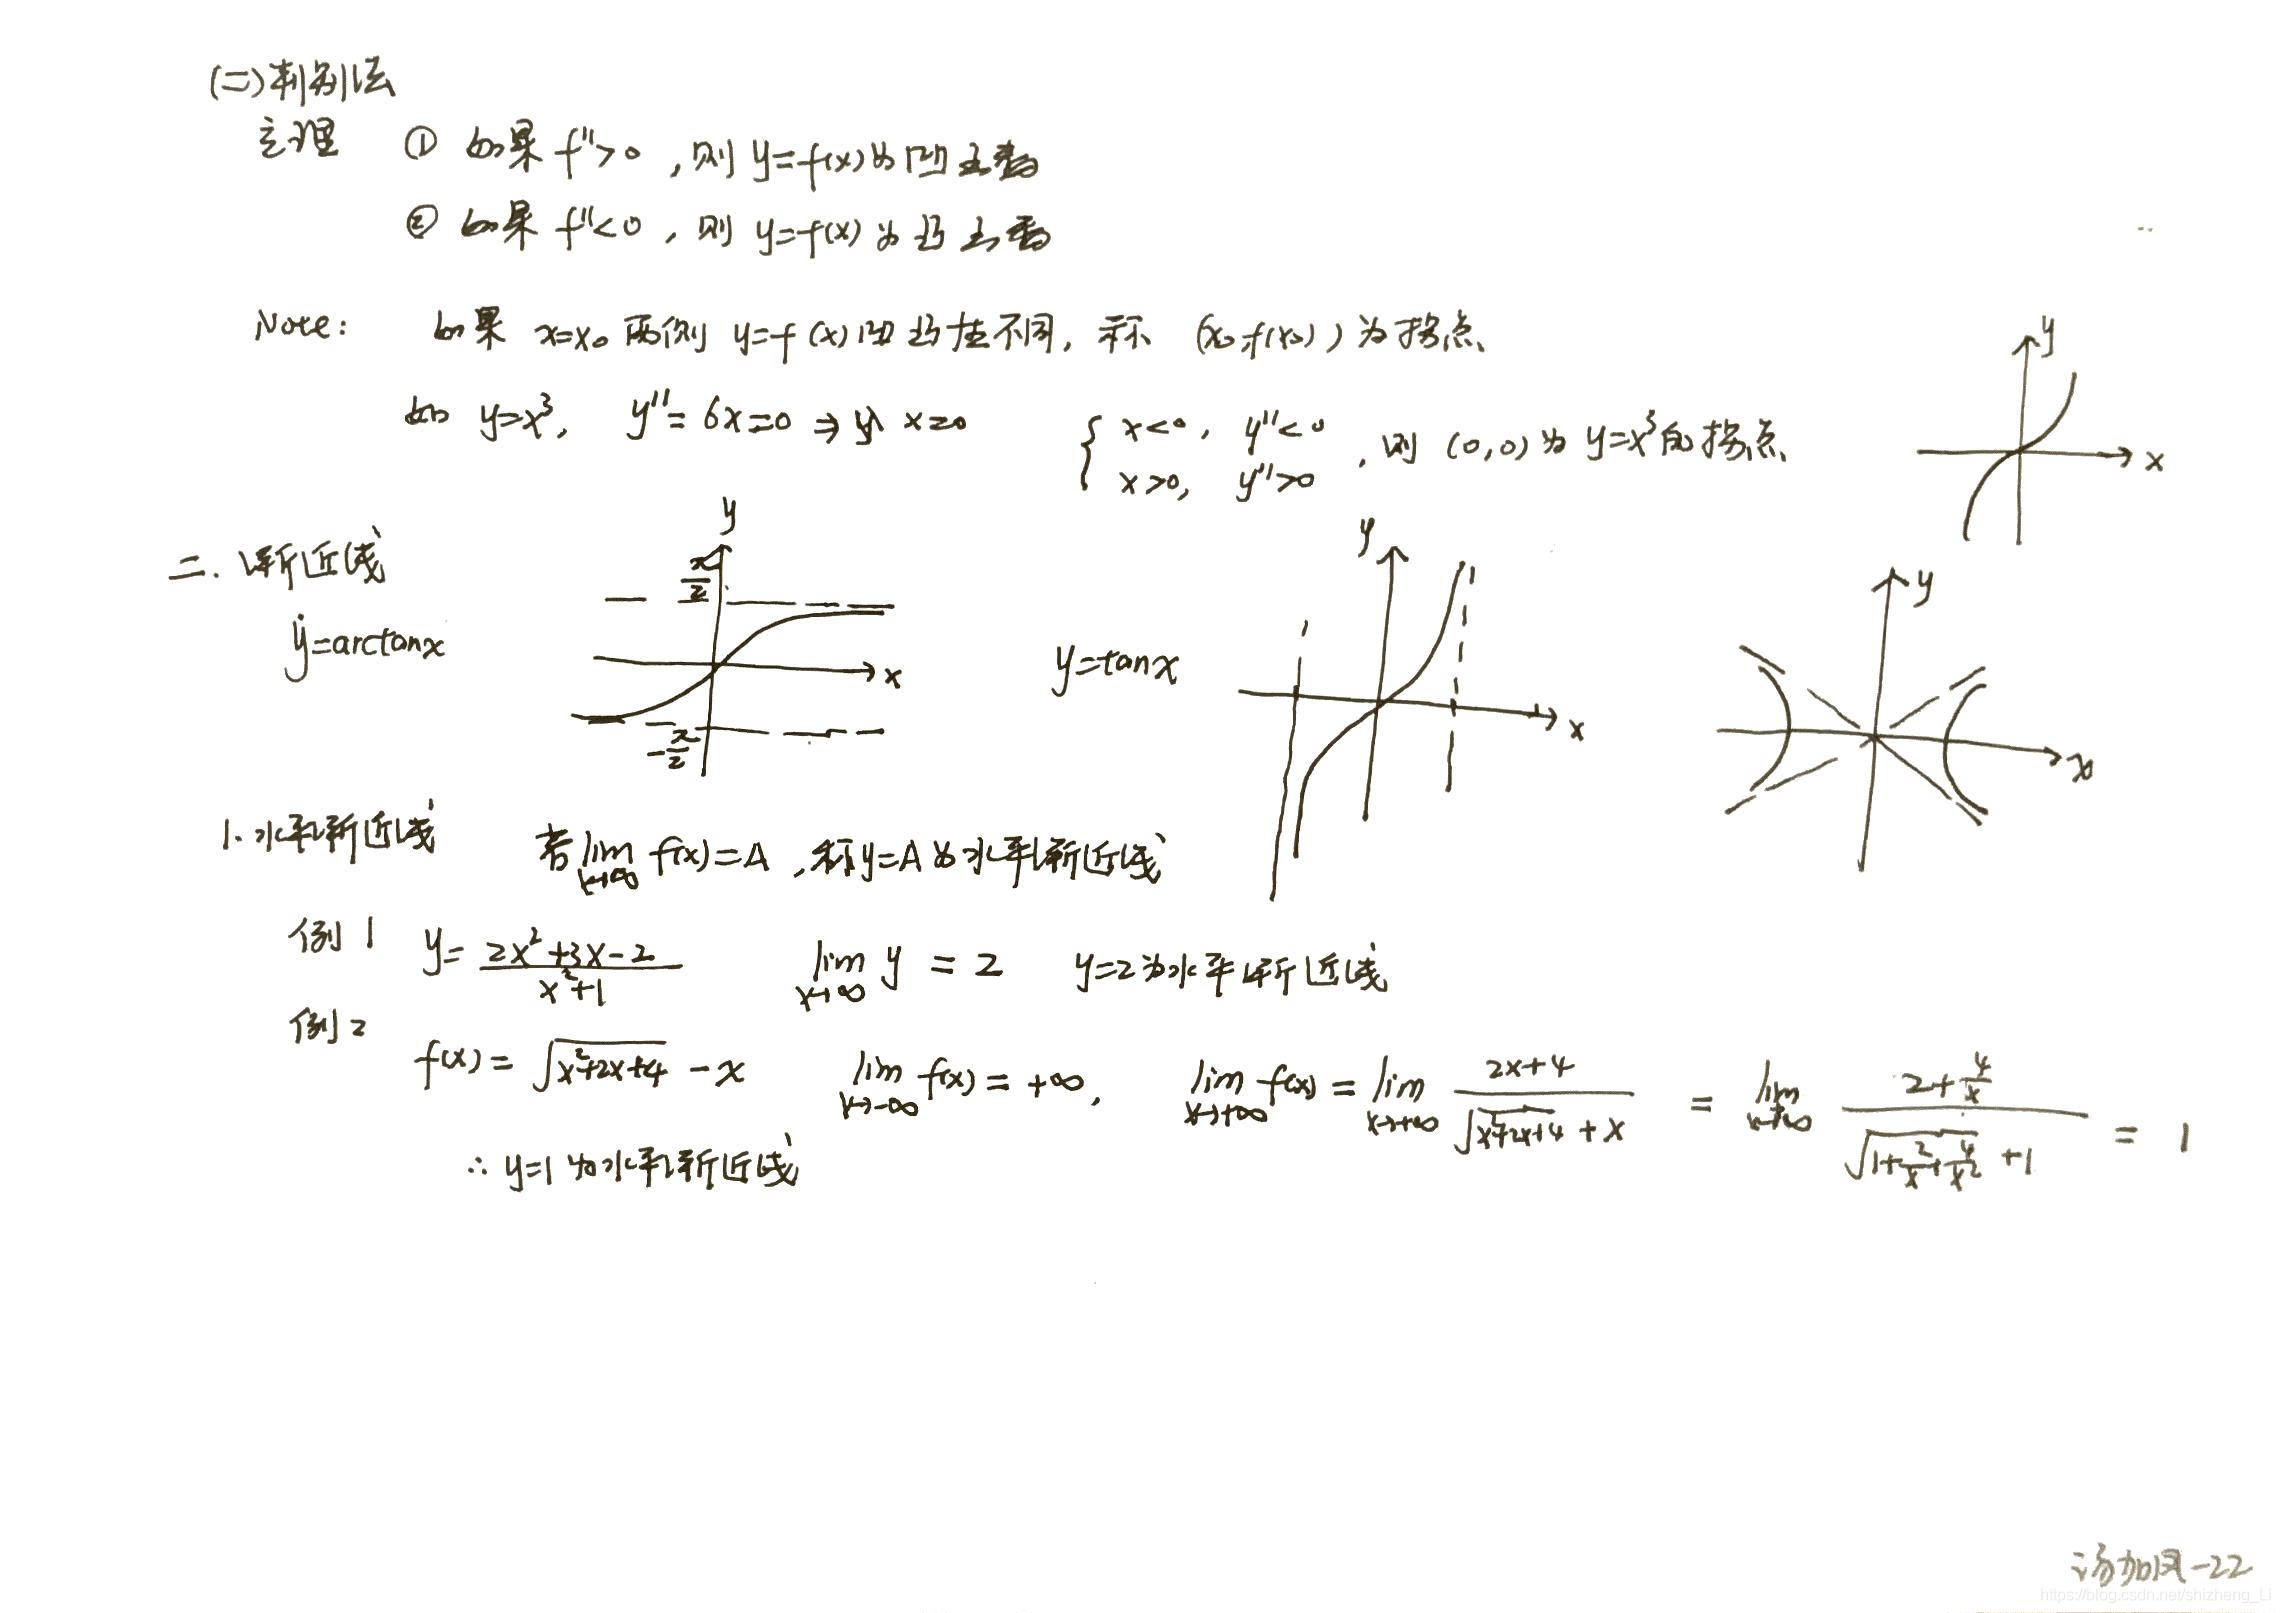 (二)判别法
定理 ① 如果 f''>0 ,则 y=f(x)为凹函数
② 如果 f''<0 , 则 y=f(x) 为凸函数
Note: 如果 x=x₀ 两侧 y=f(x)凹凸性不同, 称 (x₀,f(x₀))为拐点
如 y=x³, y''=6x=0 ⇒ x=0 { x<0, y''<0
x>0, y''>0 ,则 (0,0)为 y=x³的拐点
y
x
二. 渐近线
y=arctanx
y
π/2
x
-π/2
y=tanx
y
x
y
x
1.水平渐近线 若 lim x→∞ f(x)=A ,称y=A为水平渐近线
例1 y= (2x²+3x-2)/(x²+1) lim x→∞ y = 2 y=2为水平渐近线
例2 f(x)= √(x²+2x+4) - x lim x→-∞ f(x) = +∞, lim x→+∞ f(x) = lim x→+∞ (2x+4)/(√(x²+2x+4) + x) = lim x→+∞ (2+4/x)/(√(1+2/x+4/x²) +1) = 1
∴ y=1 为水平渐近线
汤加凤-22
https://blog.csdn.net/shizheng_Li